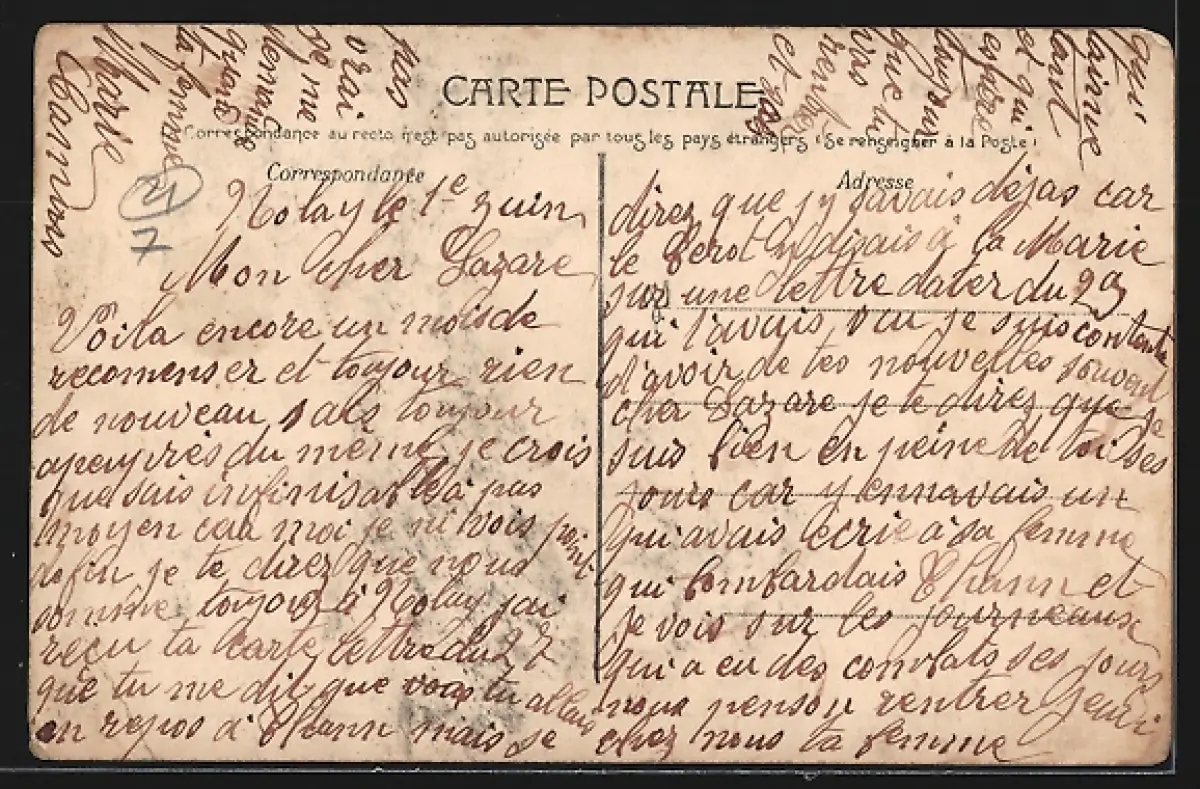 CARTE POSTALE
Correspondance au recto n'est pas autorisée par tous les pays étrangers (Se renseigner à la Poste)
Correspondance
Adresse
21
7
Nolay le 1e Juin
Mon cher Lazare
Voila encore un mois de
recomenser et toujour rien
de nouveau, sais toujour
apeuyrès du même, je crois
que sais infinisable à pas
moyen car moi je ni vois point
defin je te direz que nous
somme toujour à Nolay j'ai
reçu ta carte lettre du 27
que tu me dit que vous tu allais
en repos à Thann mais je
direz que j'y savais déjas car
le Perot disais à la Marie
sur une lettre dater du 29
qui t'avais vu je suis contente
d'avoir de tes nouvelles souvent
cher Lazare je te direz que je
suis bien en peine de toi ses
jours car y ennavais un
qui avais écrie à sa femme
qui bombardais Thann et
je vois sur les journeaux
qui a eu des combats ses jours
nous penson rentrer jeudi
chez nous ta femme
qui
t'aime
tant
et qui
espère
toujour
que tu
vas
rentrer
et pas
pas
vrai
je me
demande
quand
ta femme
Marie